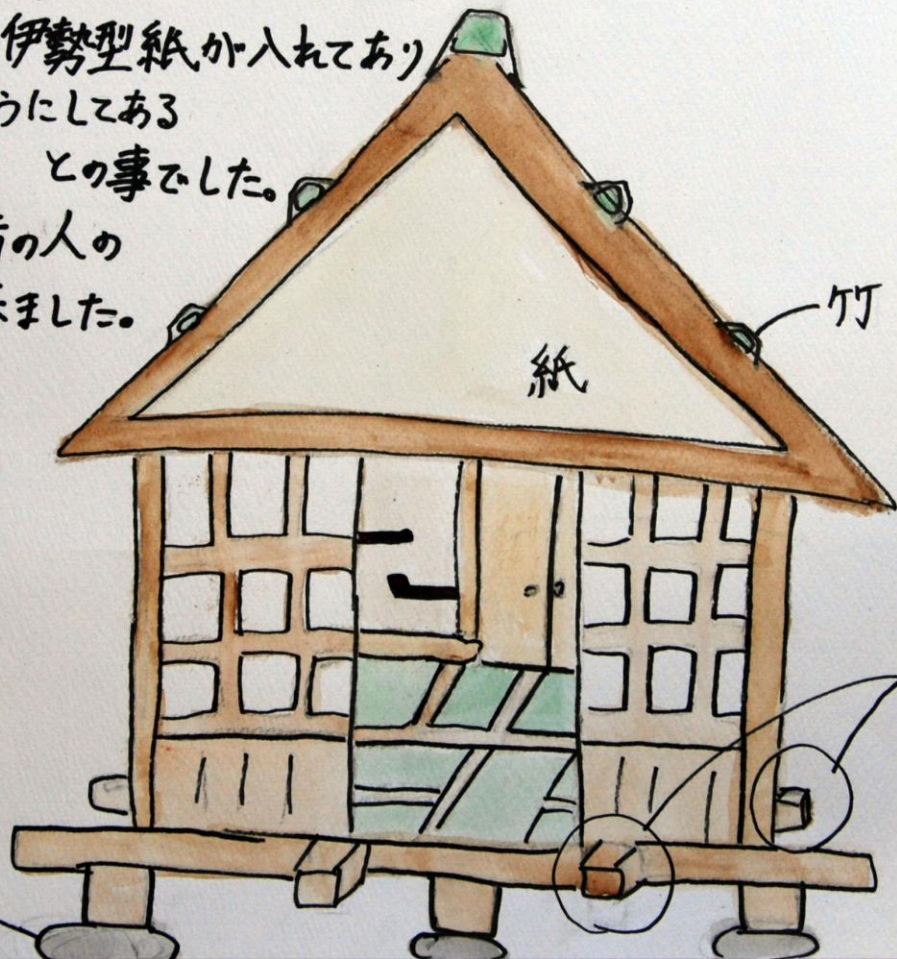 伊勢型紙が入れてあり
うにしてある
との事でした。
の人の
ました。
竹
紙